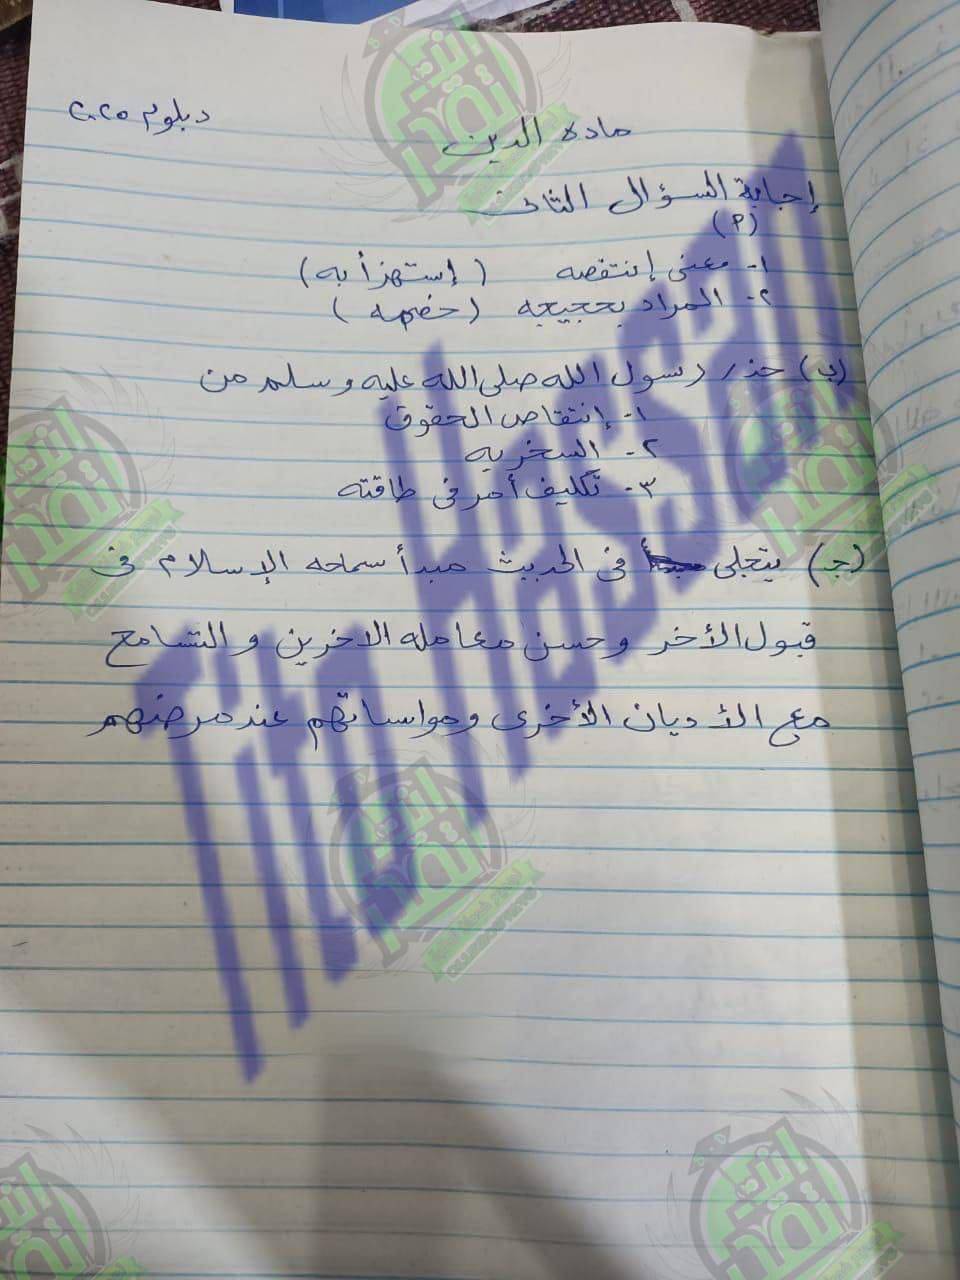 دبلوم ٢٠٢٥
ماده الدين
إجابة السؤال الثانى
(٩)
١- معنى إنتقصه (إستهزأ به)
٢- المراد بحجيجه (خصمه)
(ب) حذر رسول الله صلى الله عليه وسلم من
١- إنتقاص الحقوق
٢- السخريه
٣- تكليف أمر فى طاقته
(جـ) يتجلى فى الحديث مبدأ سماحه الإسلام فى
قبول الأخر وحسن معامله الاخرين والتسامح
مع الأديان الأخرى ومواساتهم عند مرضهم
Tito Hassan
انت
تقدر